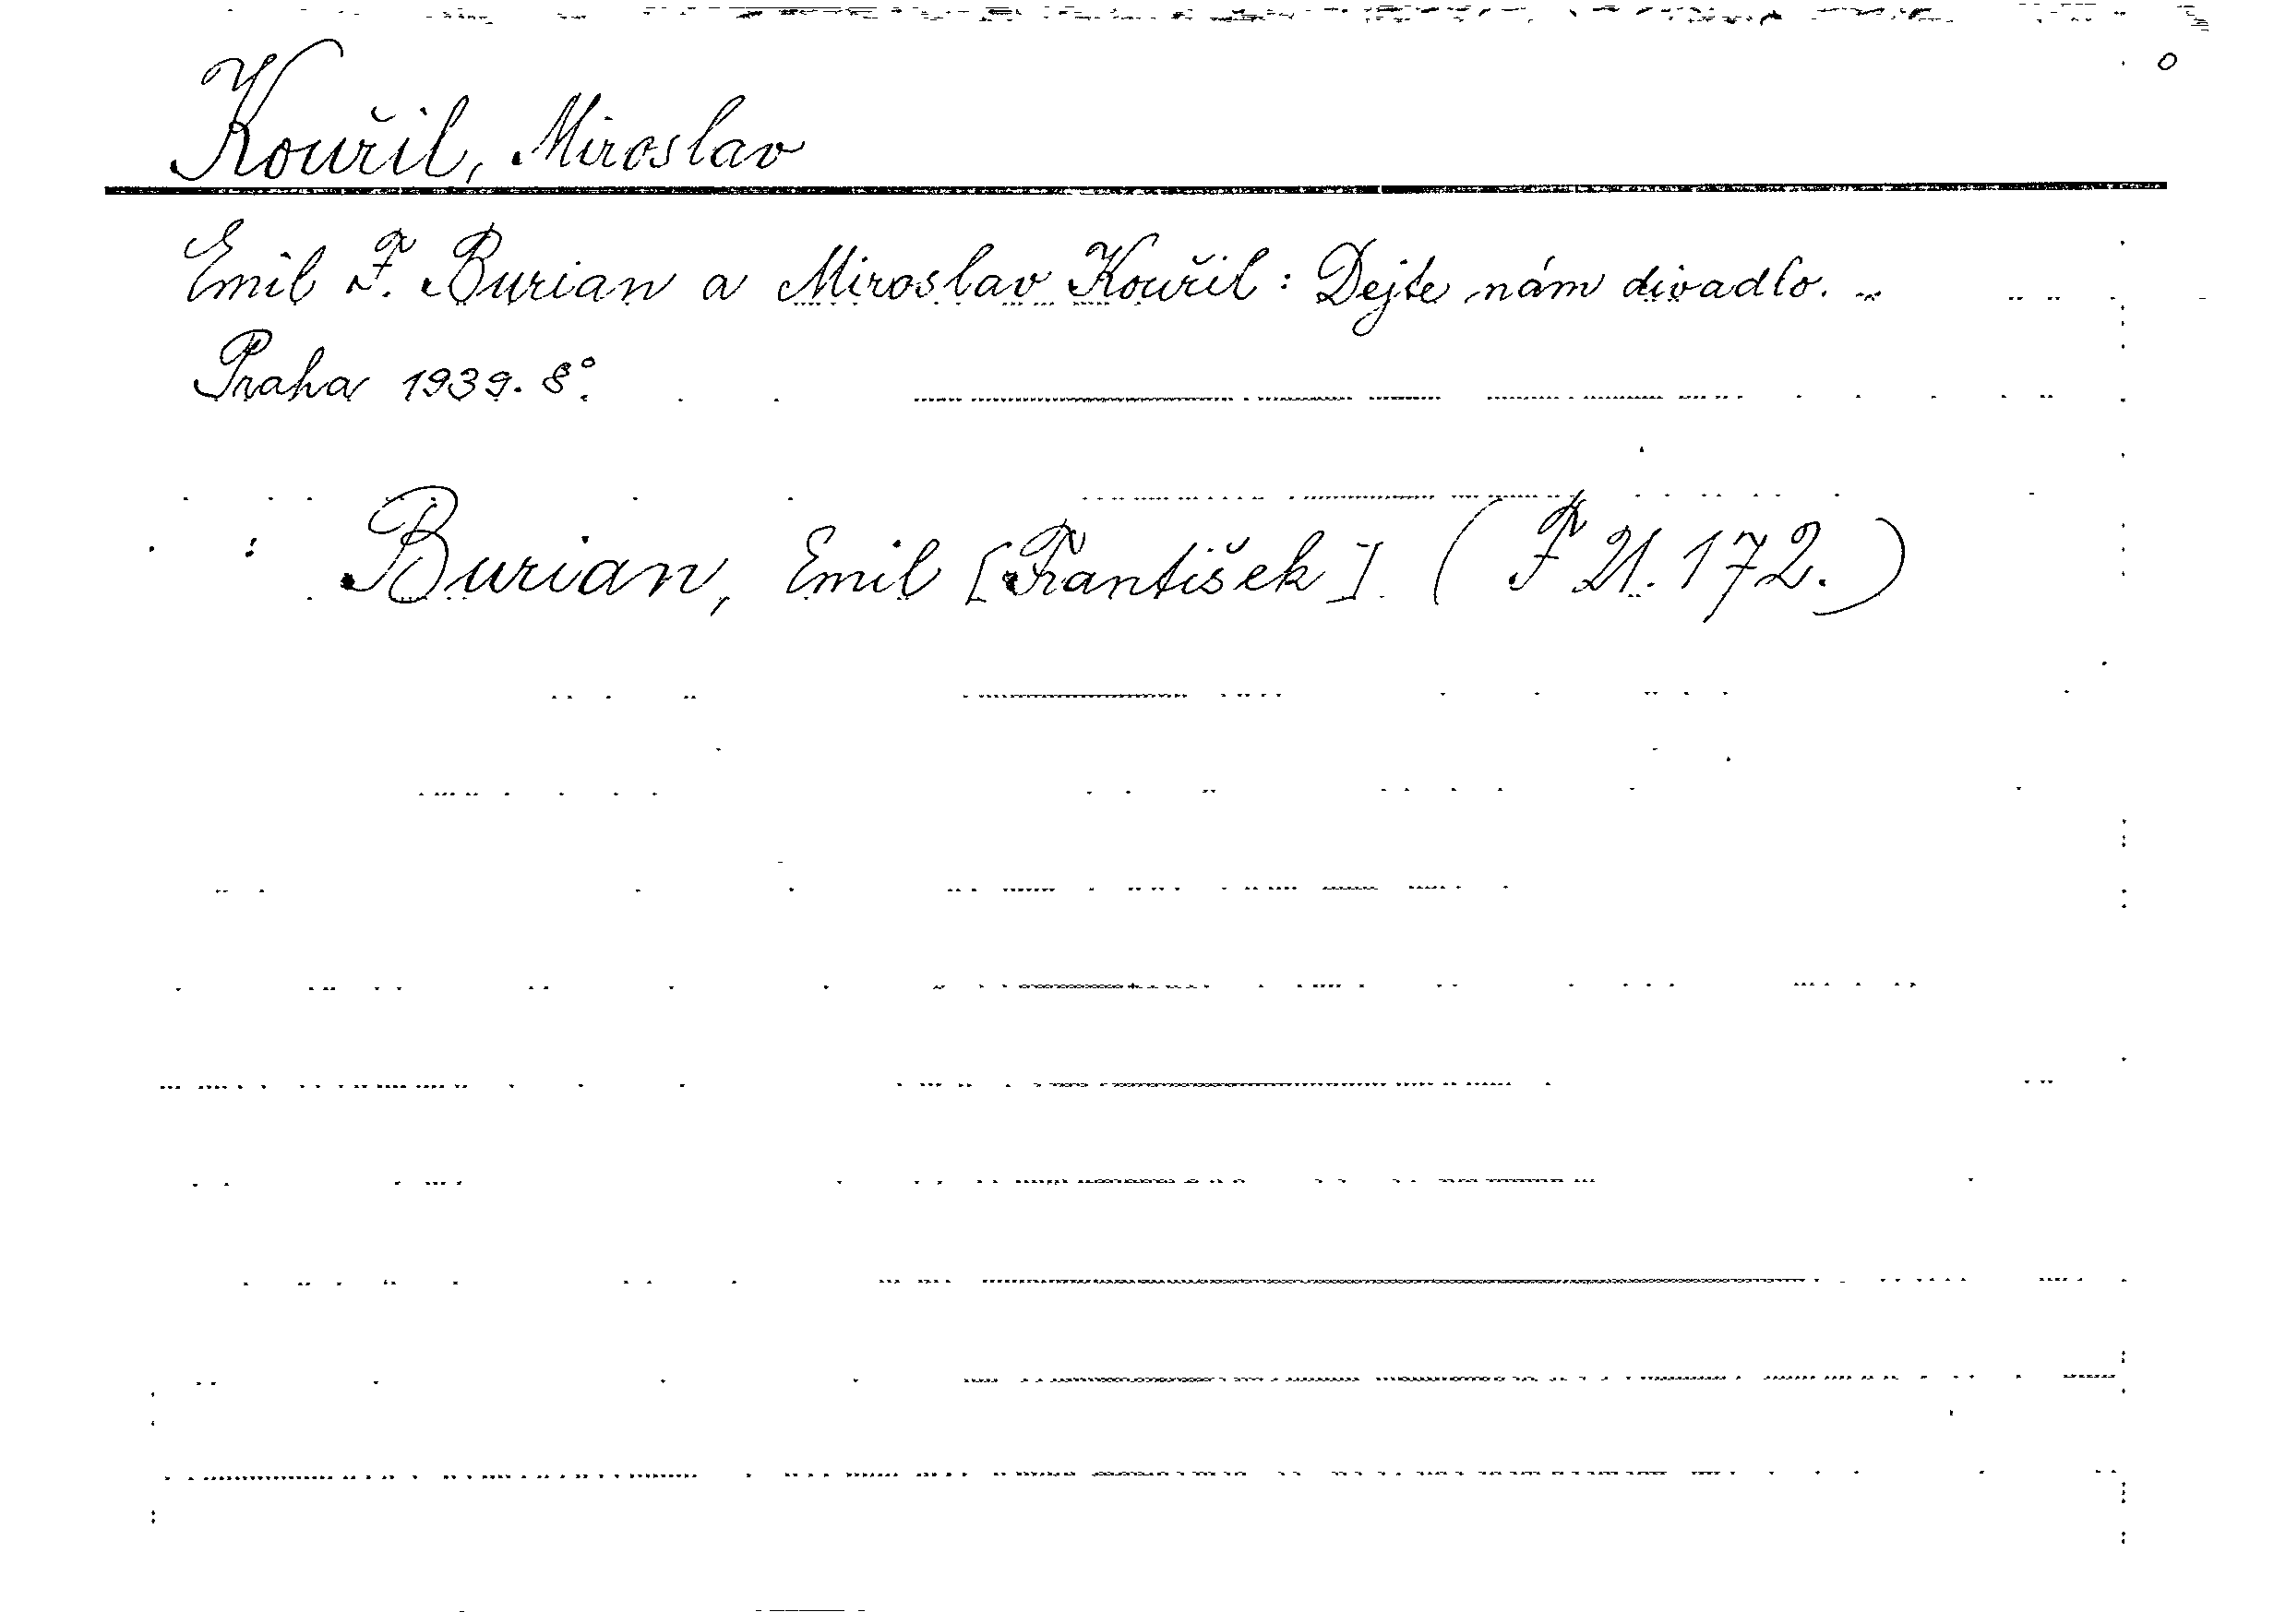 Kouřil, Miroslav
Emil F. Burian a Miroslav Kouřil: Dejte nám divadlo. –
Praha 1939. 8°.
: Burian, Emil [František] (F 21.172.)